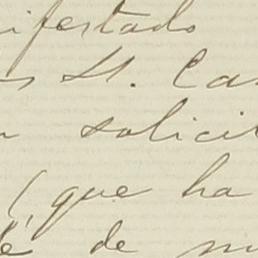 ifestado
s St. Ca
n solicit
(que ha
é de m